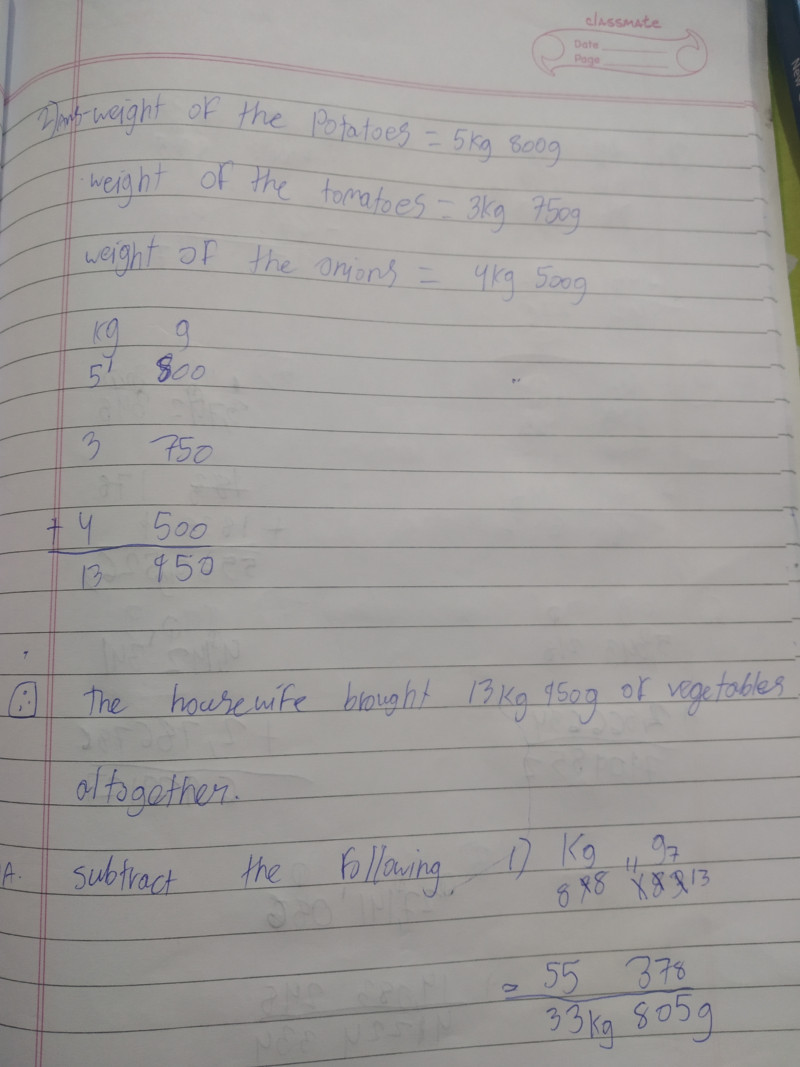 classmate
Date
Page
2) Ans- weight of the Potatoes = 5kg 800g
weight of the tomatoes = 3kg 750g
weight of the onions = 4kg 500g
kg g
5 1 800
3 750
+ 4 500
13 950
∴ The housewife brought 13kg 950g of vegetables
altogether.
A. subtract the following 1) Kg g
= 55 378
33kg 805g